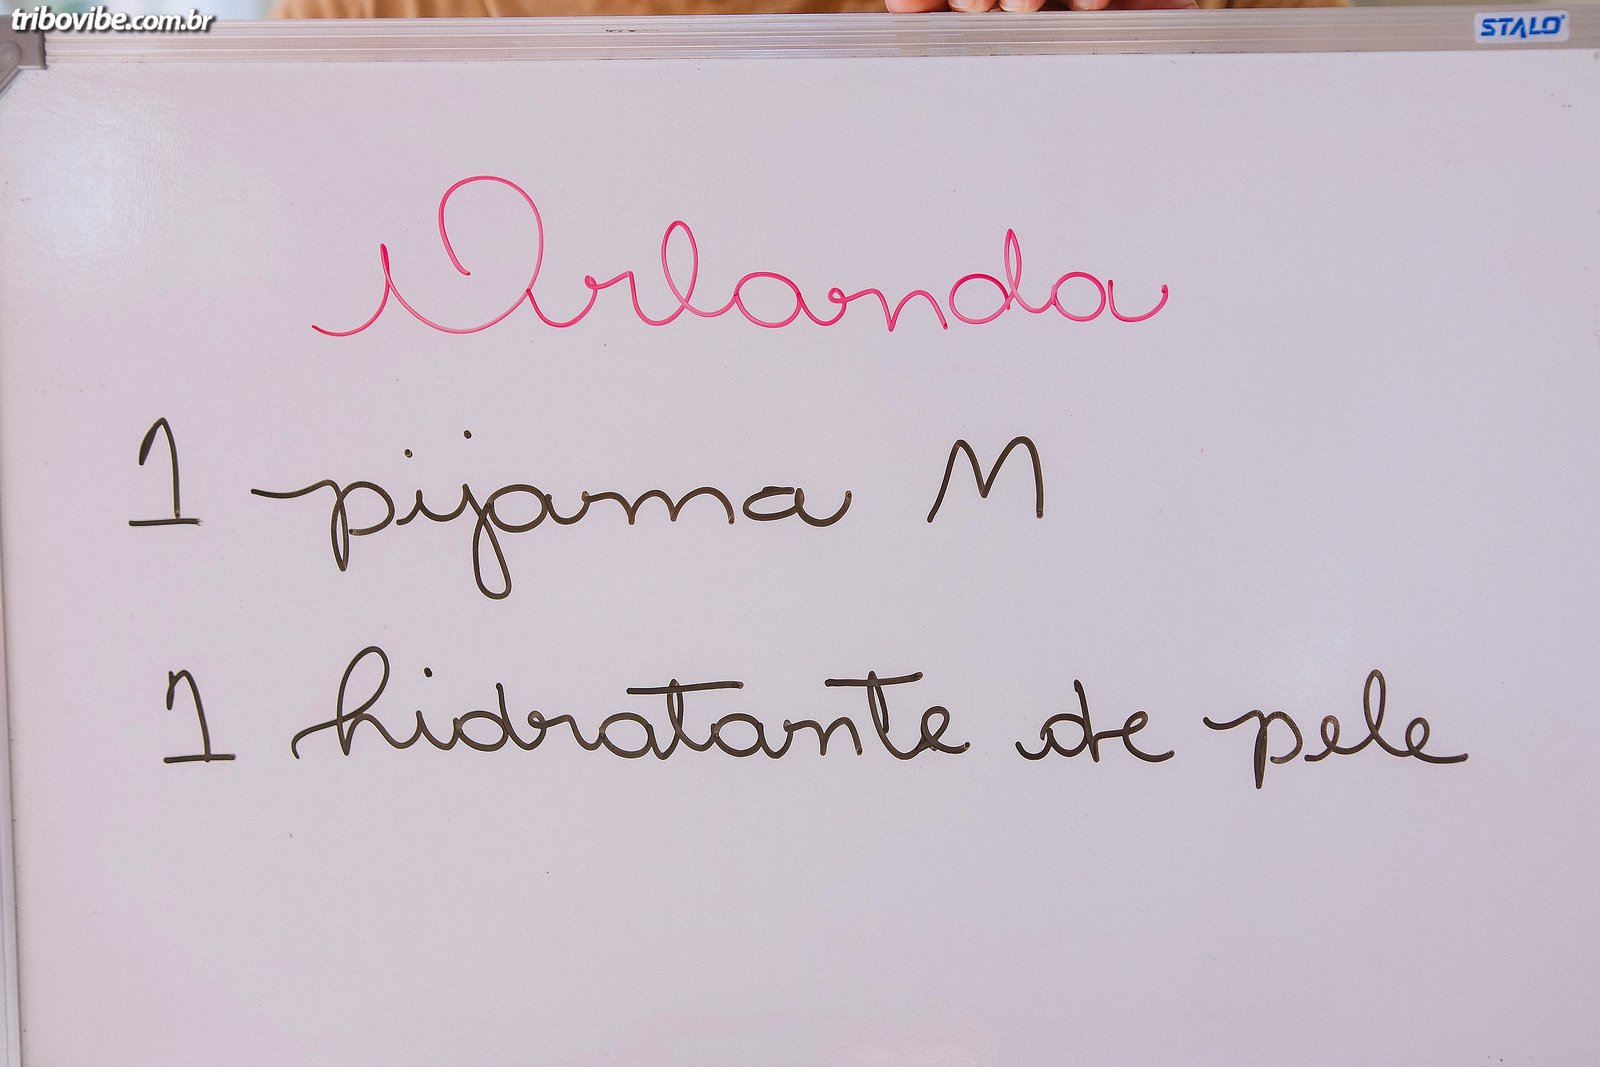 tribovibe.com.br
STALO
Orlanda
1 pijama M
1 hidratante de pele